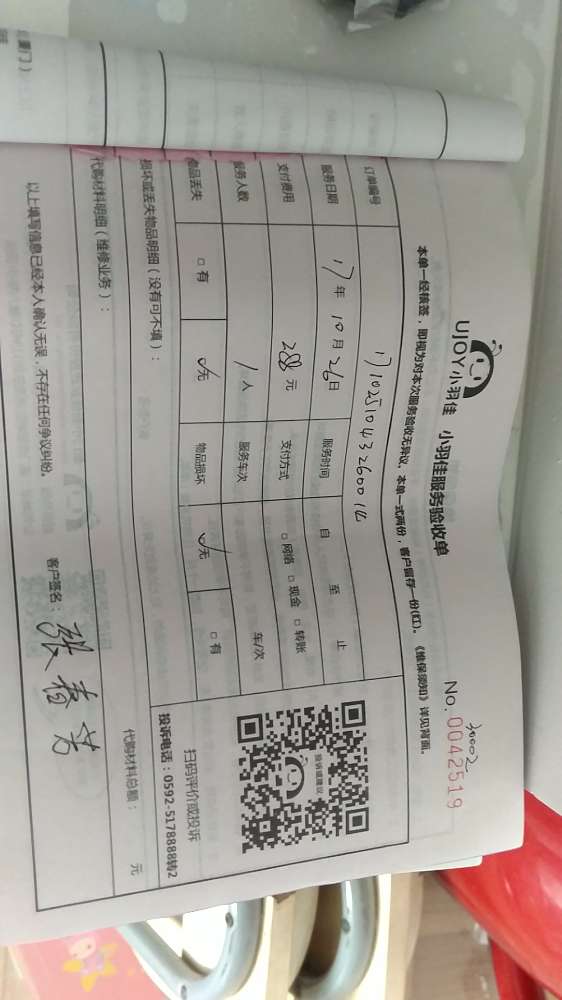 UJOY小羽佳 小羽佳服务验收单
30002
No. 0042519
本单一经核签，即视为对本次服务验收无异议。本单一式两份，客户留存一份(红)。《维保须知》详见背面。
订单编号
服务日期 17年 10月 26日 服务时间 自 至 止
支付费用 288元 支付方式 □网络 □现金 □转账
服务人数 1人 服务车次 车/次
物品丢失 □有 ✓无 物品损坏 ✓无 □有
损坏或丢失物品明细（没有可不填）：
投诉或建议
扫码评价或投诉
投诉电话：0592-5178888转2
代购材料明细（维修业务）：
代购材料总额： 元
以上填写信息已经本人确认无误，不存在任何争议纠纷。
客户签名：张春芳
厦门）